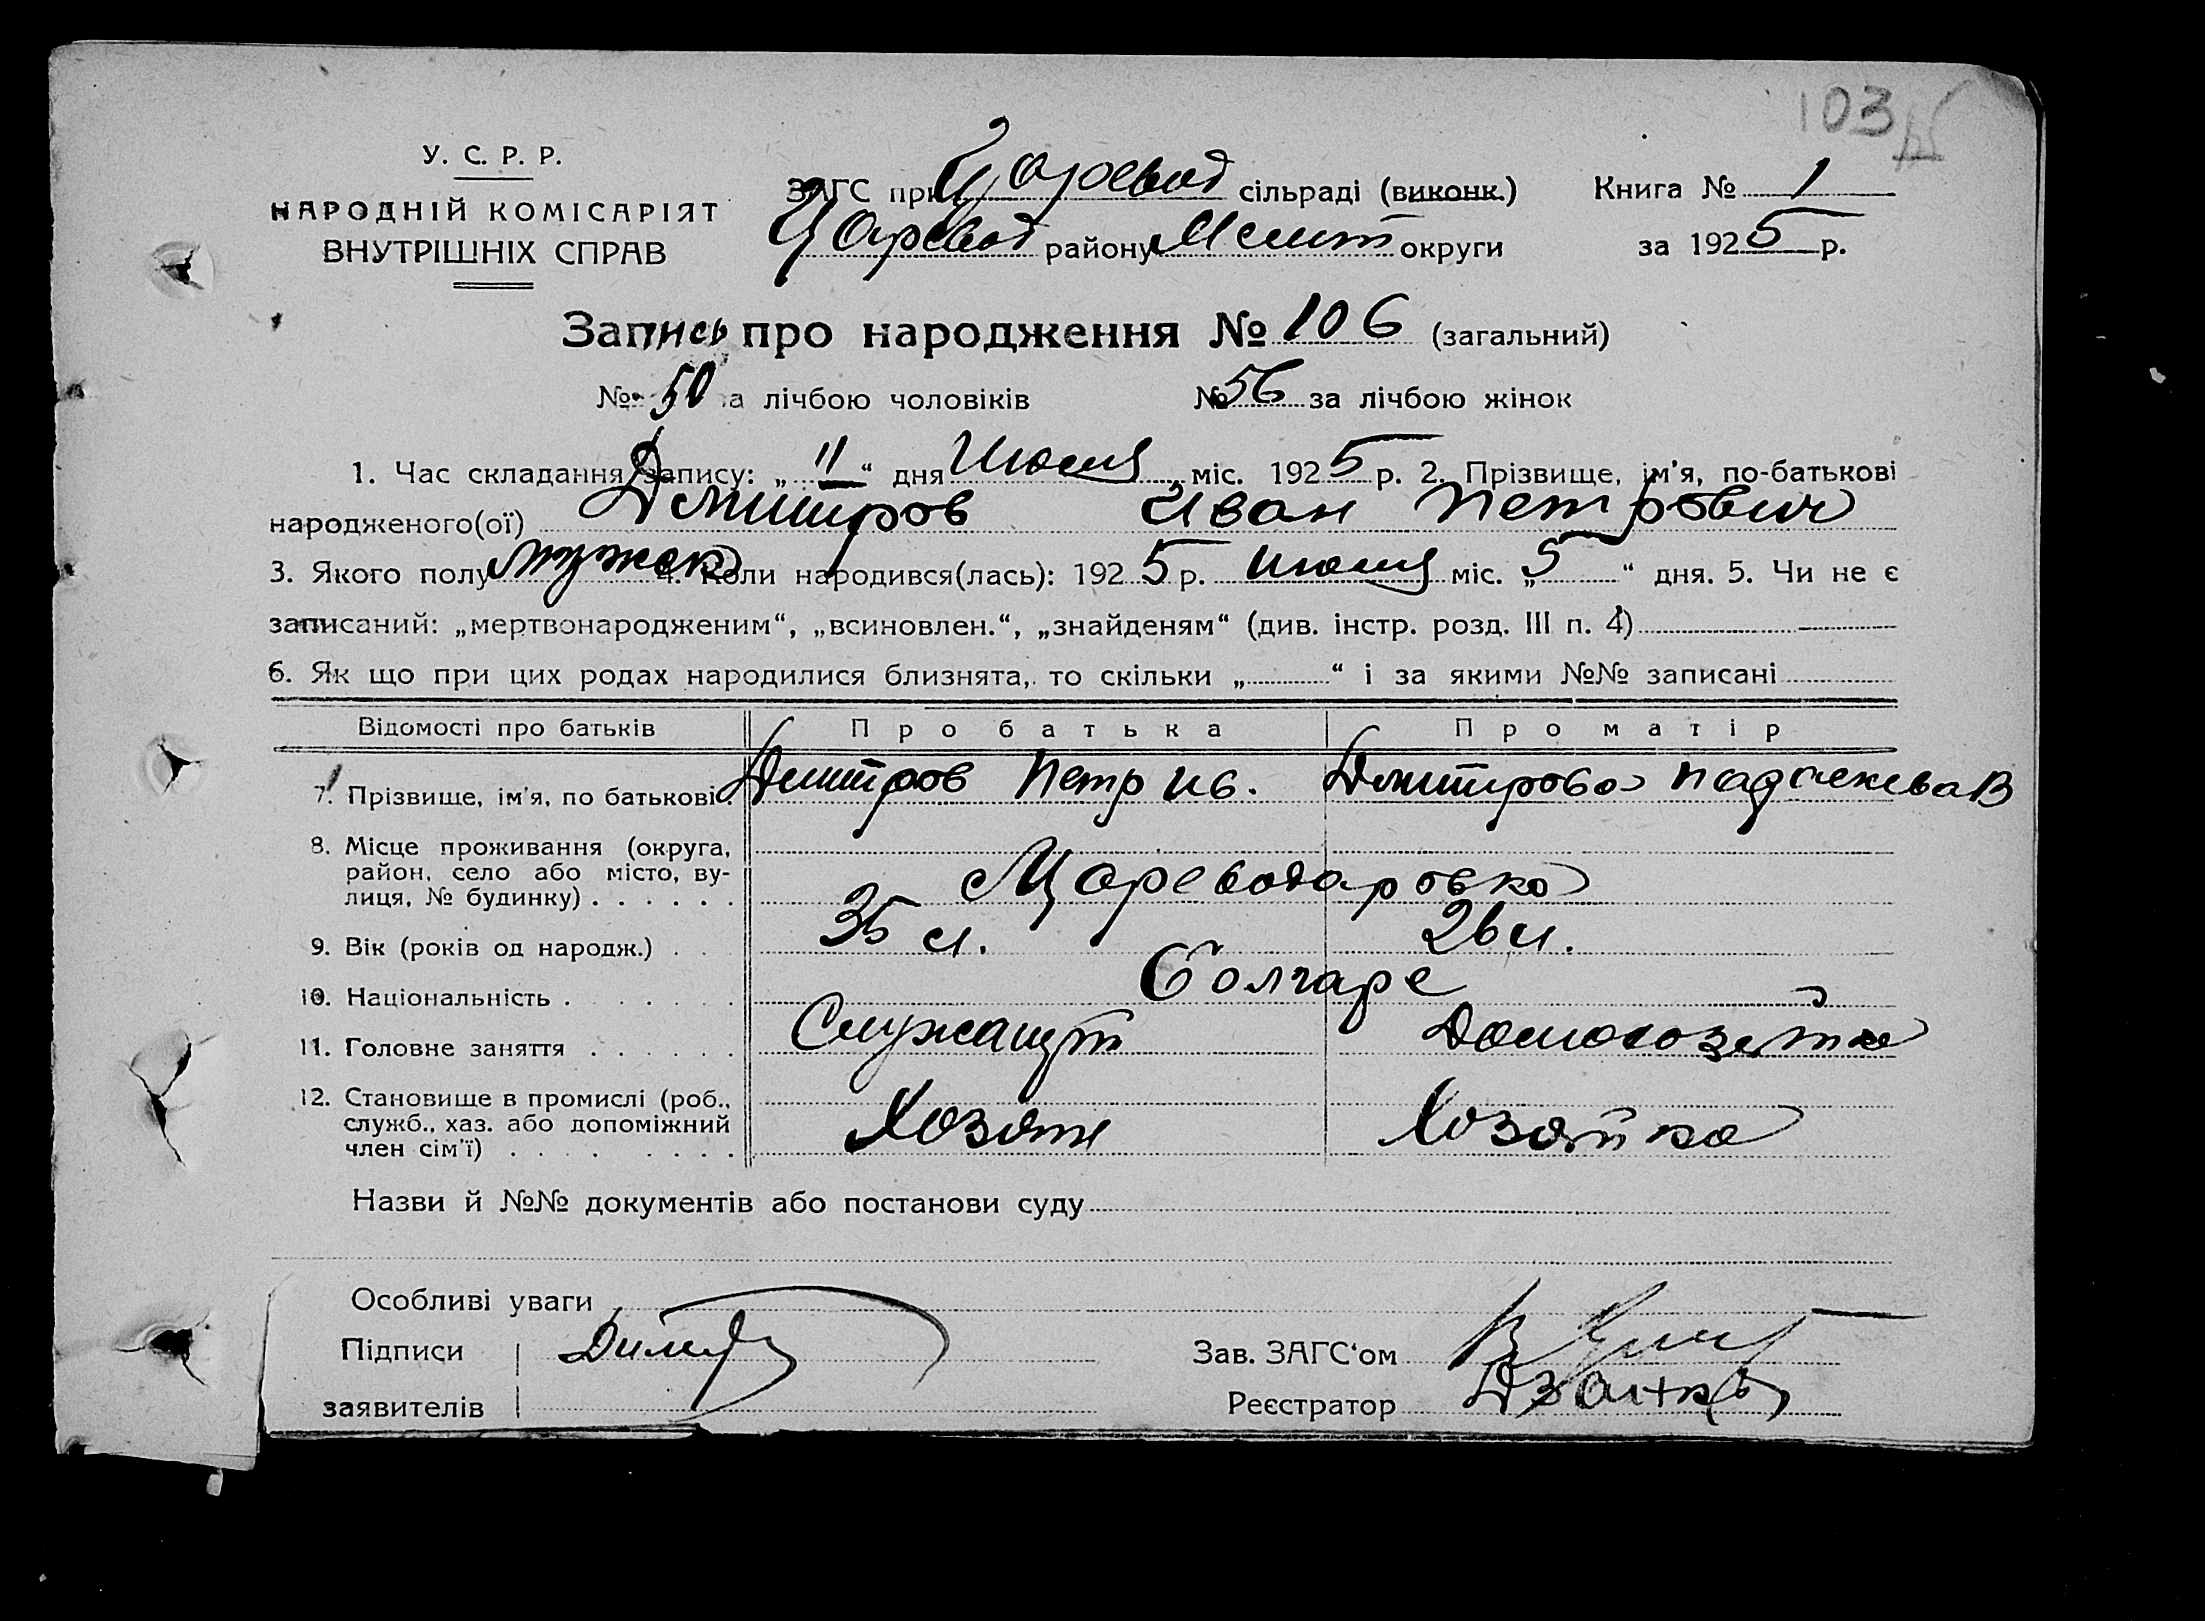 103
У. С. Р. Р.
НАРОДНІЙ КОМІСАРІЯТ
ВНУТРІШНІХ СПРАВ
ЗАГС при Царевод сільраді (виконк.) Книга № 1
Царевод району Мелит округи за 1925 р.
Запись про народження № 106 (загальний)
№ 50 за лічбою чоловіків № 56 за лічбою жінок
1. Час складання запису: „11“ дня Июля міс. 1925 р. 2. Прізвище, ім'я, по-батькові
народженого(ої) Дмитров Иван Петрович
3. Якого полу мужск 4. Коли народився(лась): 1925 р. июля міс. „5“ дня. 5. Чи не є
записаний: „мертвонародженим“, „всиновлен.“, „знайденям“ (див. інстр. розд. III п. 4)
6. Як що при цих родах народилися близнята, то скільки „ “ і за якими №№ записані
Відомості про батьків Про батька Про матір
7. Прізвище, ім'я, по батькові . Дмитров Петр Ив. Дмитрова В
8. Місце проживання (округа,
район, село або місто, ву-
лиця, № будинку) . . . . . . Цареводаровка
9. Вік (років од народж.) . . 35 л. 26 л.
10. Національність . . . . . . . Болгаре
11. Головне заняття . . . . . . Служащ
12. Становище в промислі (роб.,
служб., хаз. або допоміжний
член сім'ї) . . . . . . . . Хозяин Хозяйка
Назви й №№ документів або постанови суду
Особливі уваги
Підписи Зав. ЗАГС'ом
заявителів Реєстратор